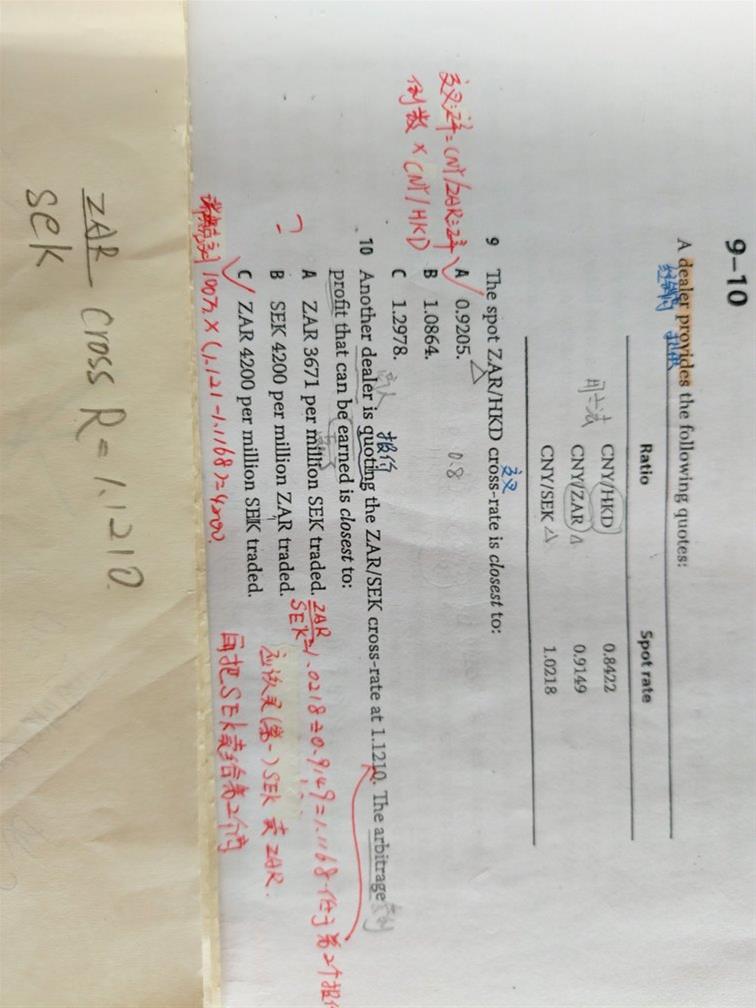 9–10
A dealer provides the following quotes:
经销商
Ratio Spot rate
CNY/HKD 0.8422
CNY/ZAR △ 0.9149
CNY/SEK △ 1.0218
交叉
9 The spot ZAR/HKD cross-rate is closest to:
A 0.9205.
0.8
B 1.0864.
C 1.2978.
倒数 × CNY/HKD
报价
10 Another dealer is quoting the ZAR/SEK cross-rate at 1.1210. The arbitrage
profit that can be earned is closest to:
A ZAR 3671 per million SEK traded.
B SEK 4200 per million ZAR traded.
C ZAR 4200 per million SEK traded.
ZAR
SEK = 1.0218 ÷ 0.9149 = 1.1168 低于第2个报价
应该买(第一)SEK 卖ZAR.
再把SEK卖给第2个商
100万 × (1.121-1.1168) = 4200.
ZAR cross R = 1.1210
SEK